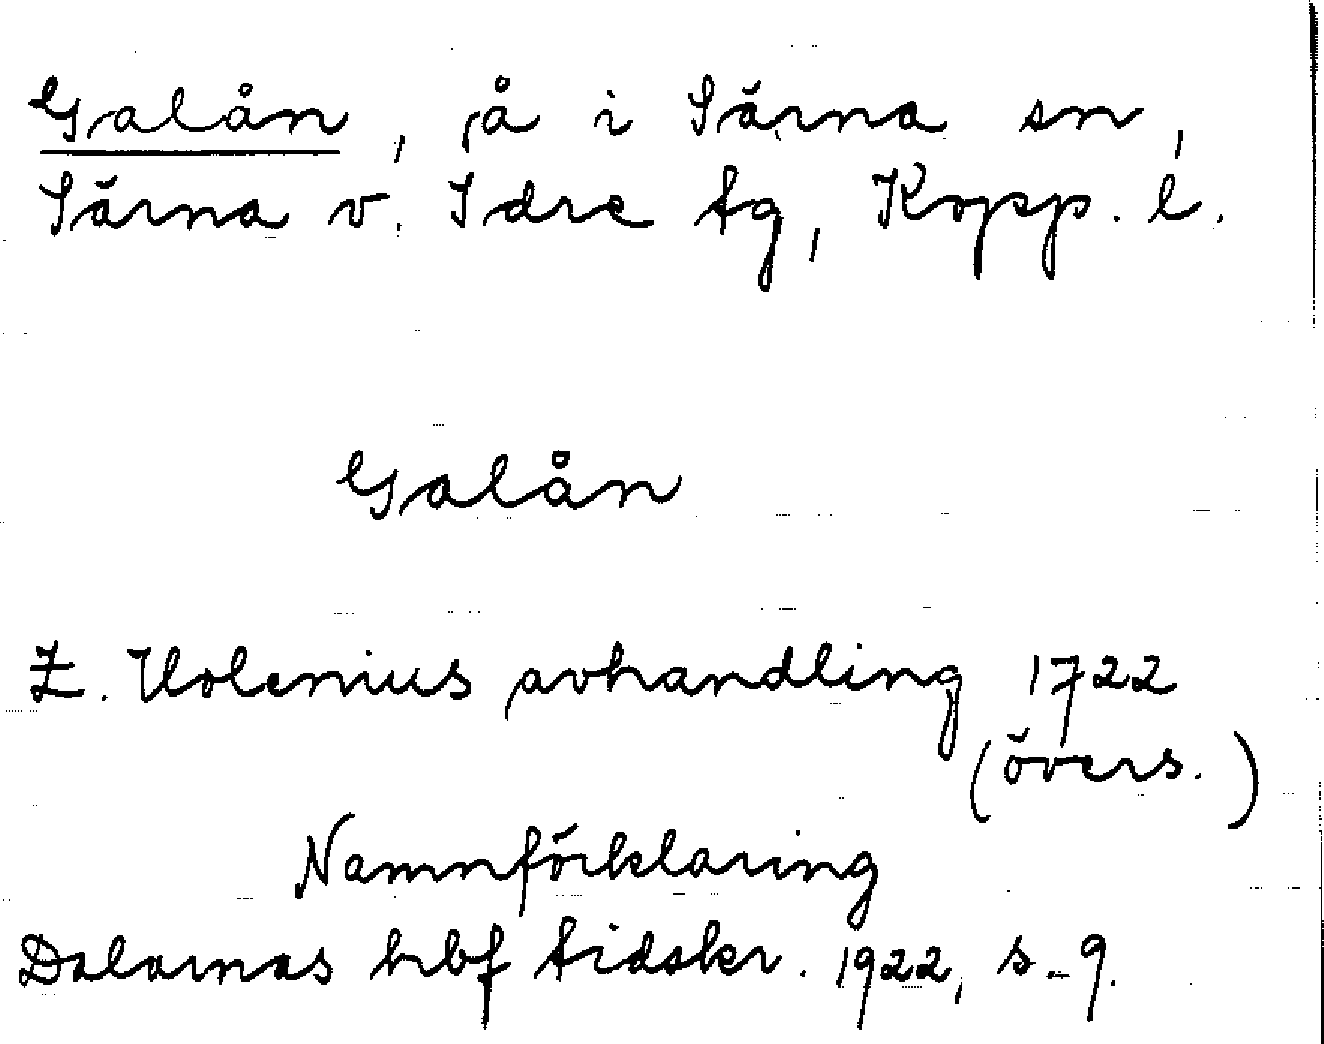 Galån, å i Särna sn,
Särna o. Idre tg, Kopp. l.
Galån
Z. Holenius avhandling 1722
(övers.)
Namnförklaring
Dalarnas hbf tidskr. 1922, s. 9.